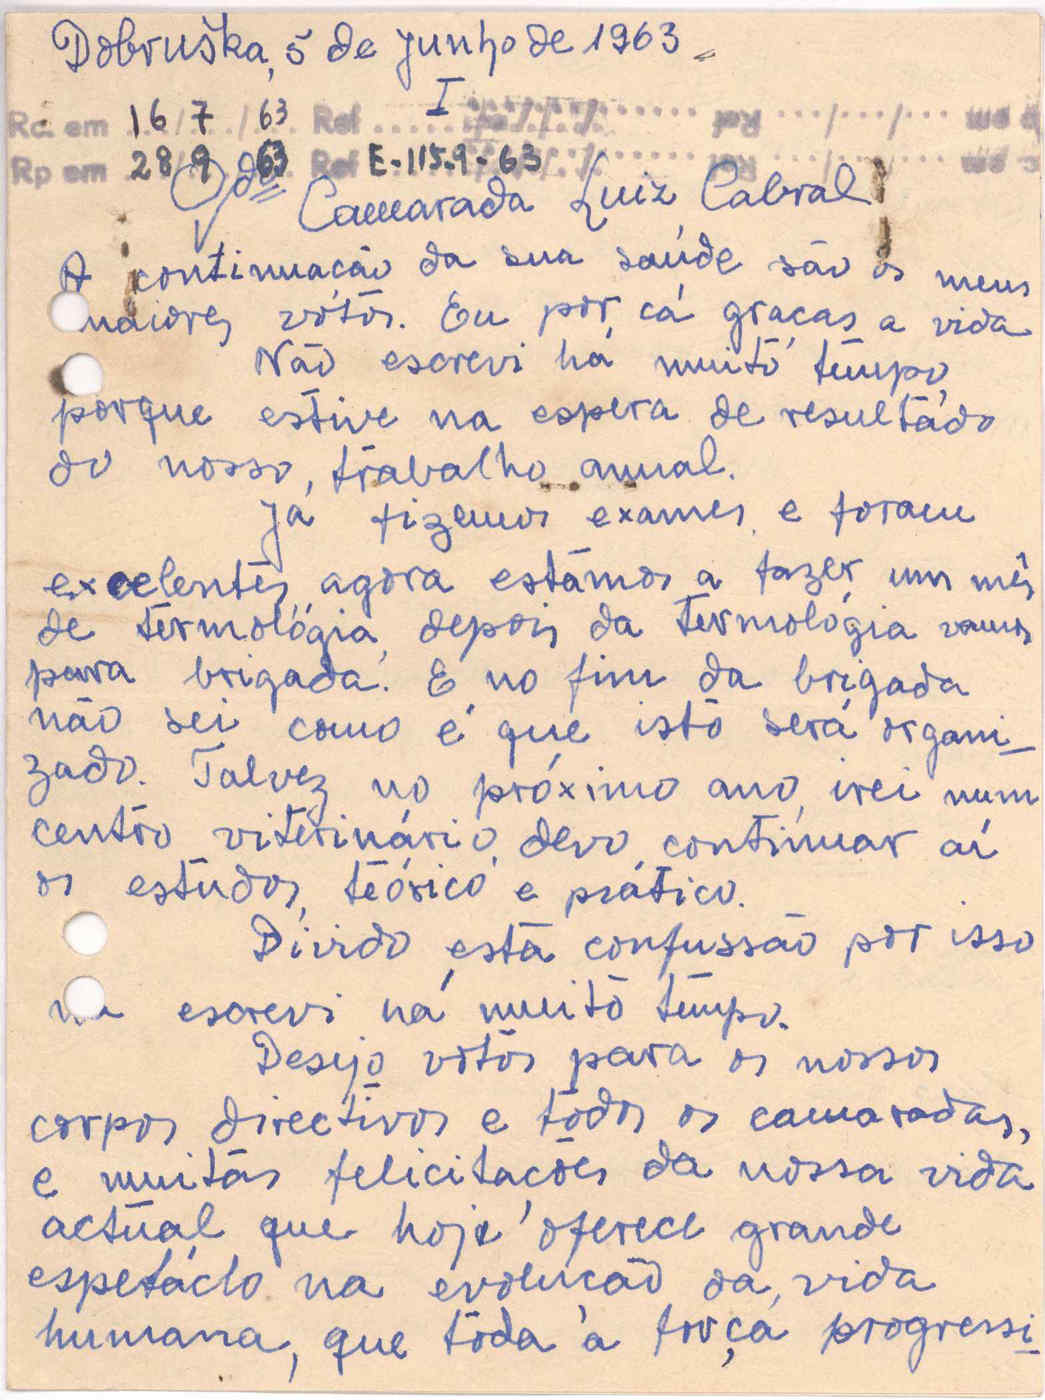 Dobruška, 5 de Junho de 1963.
I
Rc. em 16/7/63 Ref
Rp em 28/9/63 Ref E-115.9-63
Camarada Luiz Cabral
A continuação da sua saúde são os meus
maiores vótos. Eu por cá graças a vida
Não escrevi há muito tempo,
porque estive na espera de resultádo
do nosso, trabalho anual.
Já fizemos exames, e foram
excelentes, agora estámos a fazer um mês
de termológia, depois da termológia vamos
para brigada. E no fim da brigada
não sei como é que isto será organi_
zado. Talvez no próximo ano, irei num
centro viterinário, devo, continuar aí
os estudos, teórico e prático.
Divido esta confussão por isso
na escrevi há muito tempo.
Desejo votos para os nossos
corpos directivos e todos os camaradas,
e muitas felicitações da nossa vida
actual que hoje oferece grande
espetáclo na evolução da vida
humana, que toda a força progressi_